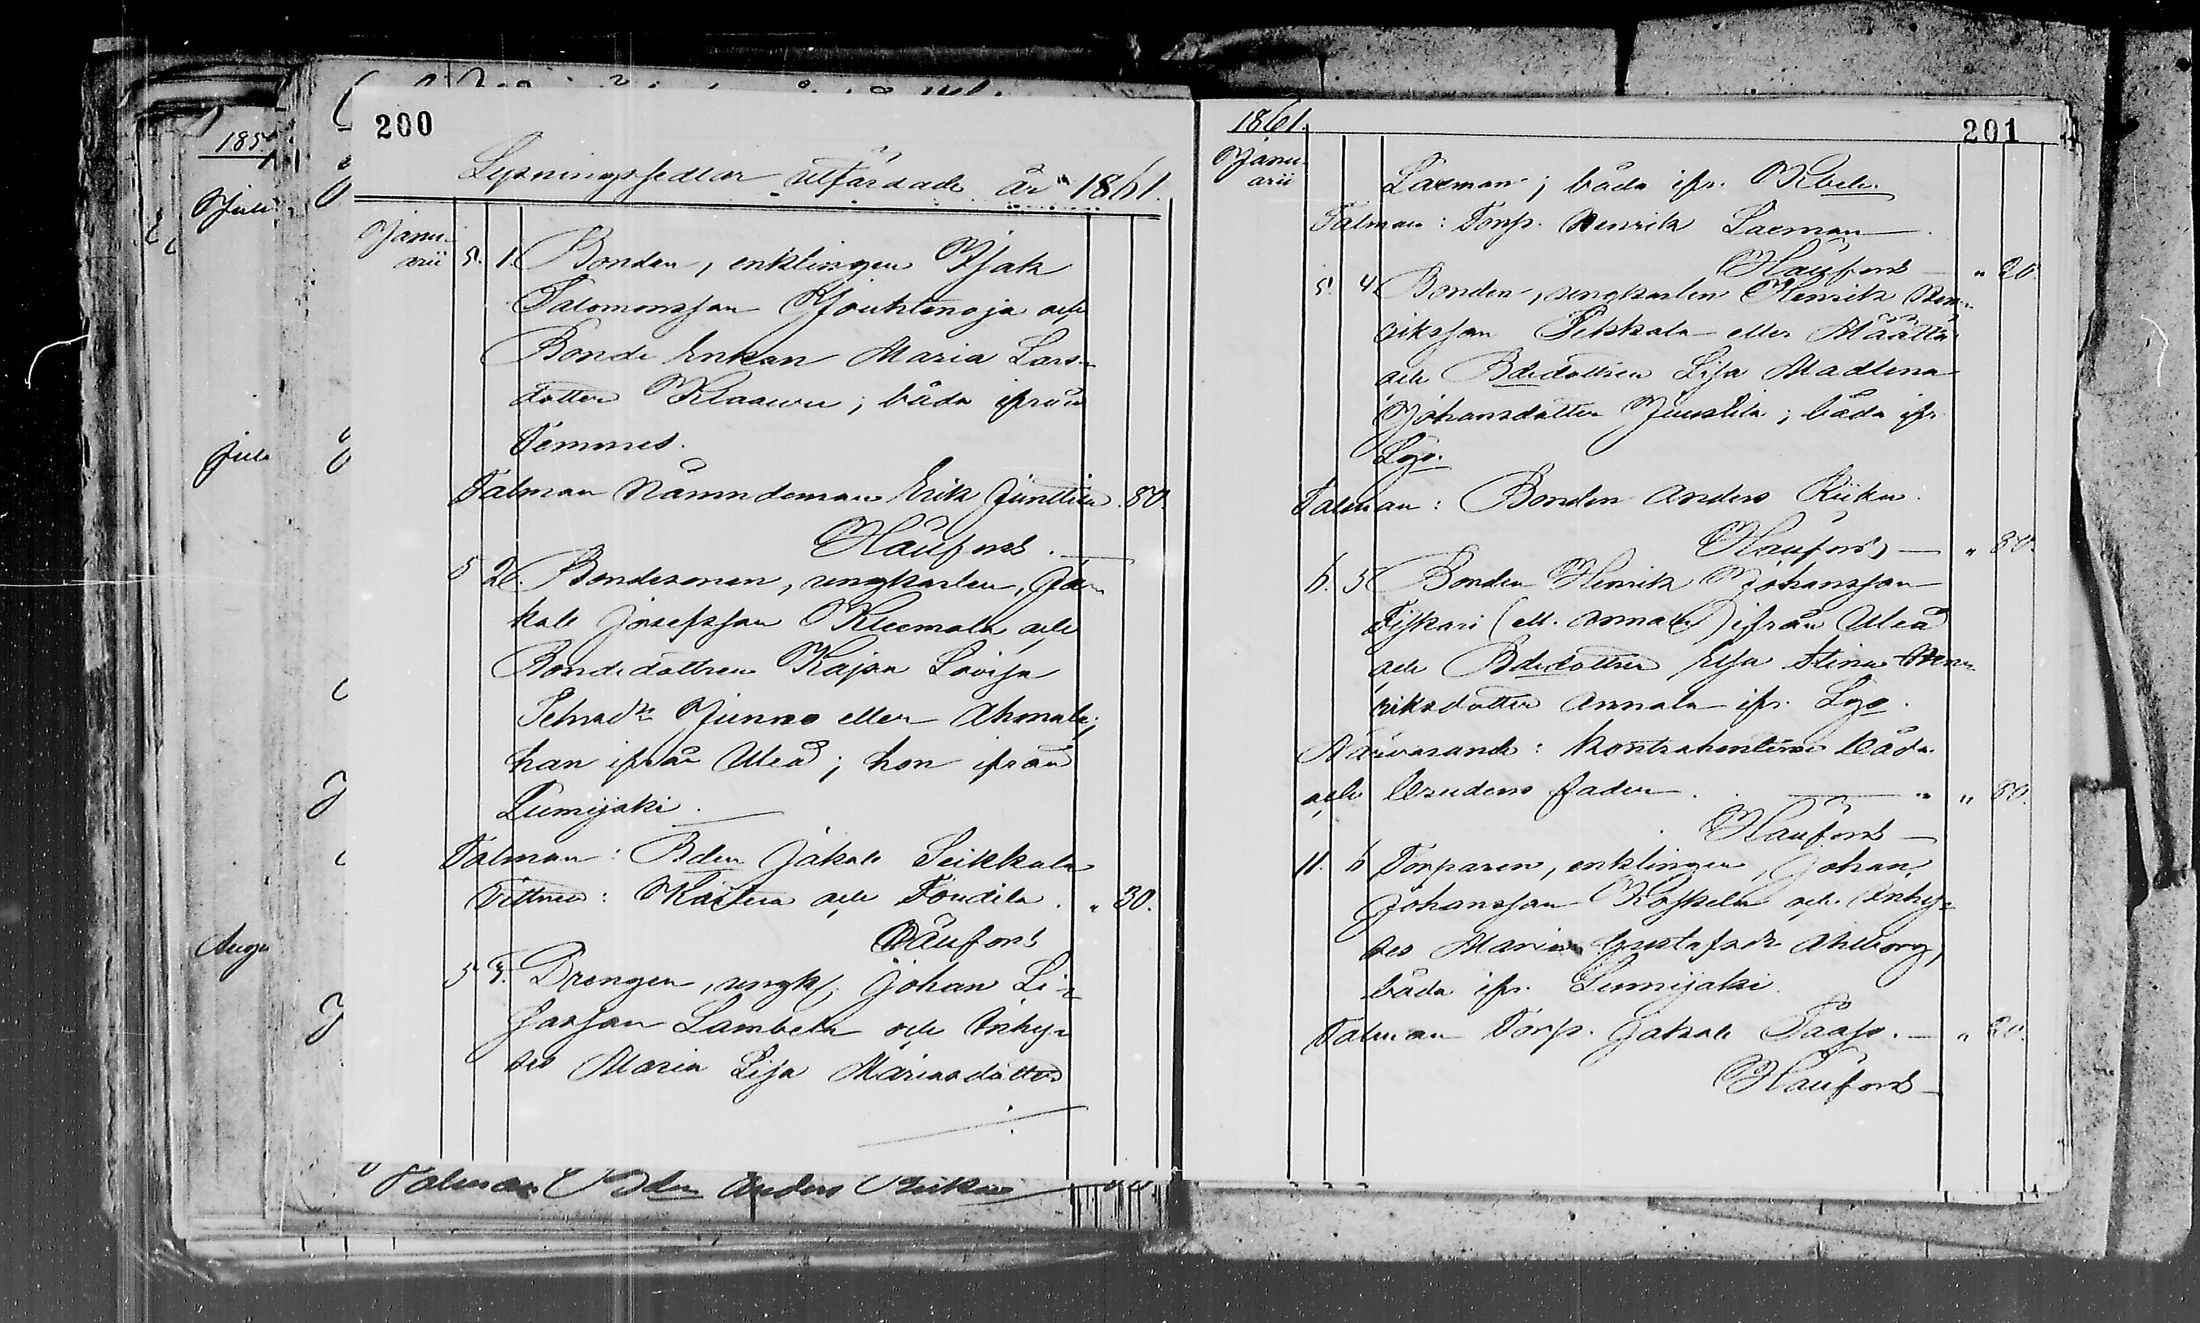 200
Lysningssedlar utfärdade år 1861.
Janu-
arii 5. 1. Bonden, enklingen Isak
Salomonsson Jouhtenoja och
Bonde Enkan Maria Lars-
dotter Klaavu; båda ifrån
Temmes.
Talman Nämndeman Erik Junttila . 80.
Haufors.
5 2. Bondesonen, ungkarlen, Ja-
kob Josefsson Kleemola och
Bondedottren Kajsa Lovisa
Petersdr Junno eller Ahmala;
han ifrån Uleå; hon ifrån
Lumijoki.
Talman: Bden Jakob Seikkala
Vittnen: och . „ 30.
Haufors
5 3. Drengen, ungk. Johan Li-
sasson Lambela och Inhys-
es Maria Lisa Mariasdotter
Talman Bden Anders
185
Juli
Juli
Aug
1861.
201
Janu-
arii
Laxman; båda ifr.
Talman: Torp. Henrik Laxman
Haufors „ 20.
5. 4. Bonden, ungkarlen Henrik Hen-
riksson Pekkala eller Määttä
och Bdedottren Lisa Madlena
Johansdotter Juusola; båda ifr.
Lgo.
Talman: Bonden Anders Riiku.
Haufors „ 80.
6. 5 Bonden Henrik Johansson
Fiskari (ell. Annala) ifrån Uleå
och Bdedottren Elsa Stina Hen-
riksdotter Annala ifr. Lgo.
Närvarande: Kontrahenterne båda
och brudens fader. „ „ 80.
Haufors
11. 6 Torparen, enklingen, Johan
Johansson Koskela och Inhys-
es Maria Gustafsdr Ahlborg,
båda ifr. Lumijoki.
Talman Torp. Jakob Paaso. „ 20.
Haufors